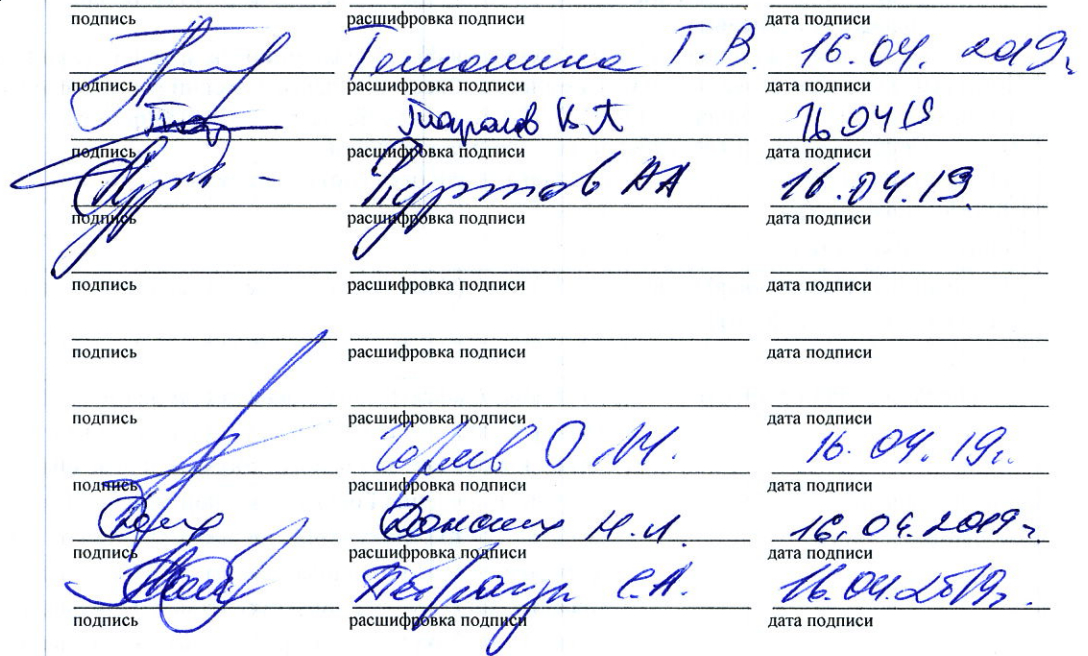 подпись расшифровка подписи дата подписи
Т. В. 16.04. 2019г
подпись расшифровка подписи дата подписи
Тарасов К А 16 04 19
подпись расшифровка подписи дата подписи
Куртов АА 16.04.19.
подпись расшифровка подписи дата подписи
подпись расшифровка подписи дата подписи
подпись расшифровка подписи дата подписи
подпись расшифровка подписи дата подписи
О.М. 16. 04. 19г.
подпись расшифровка подписи дата подписи
Донских Н.Л. 16.04.2019г
подпись расшифровка подписи дата подписи
С.А. 16.04.2019г.
подпись расшифровка подписи дата подписи